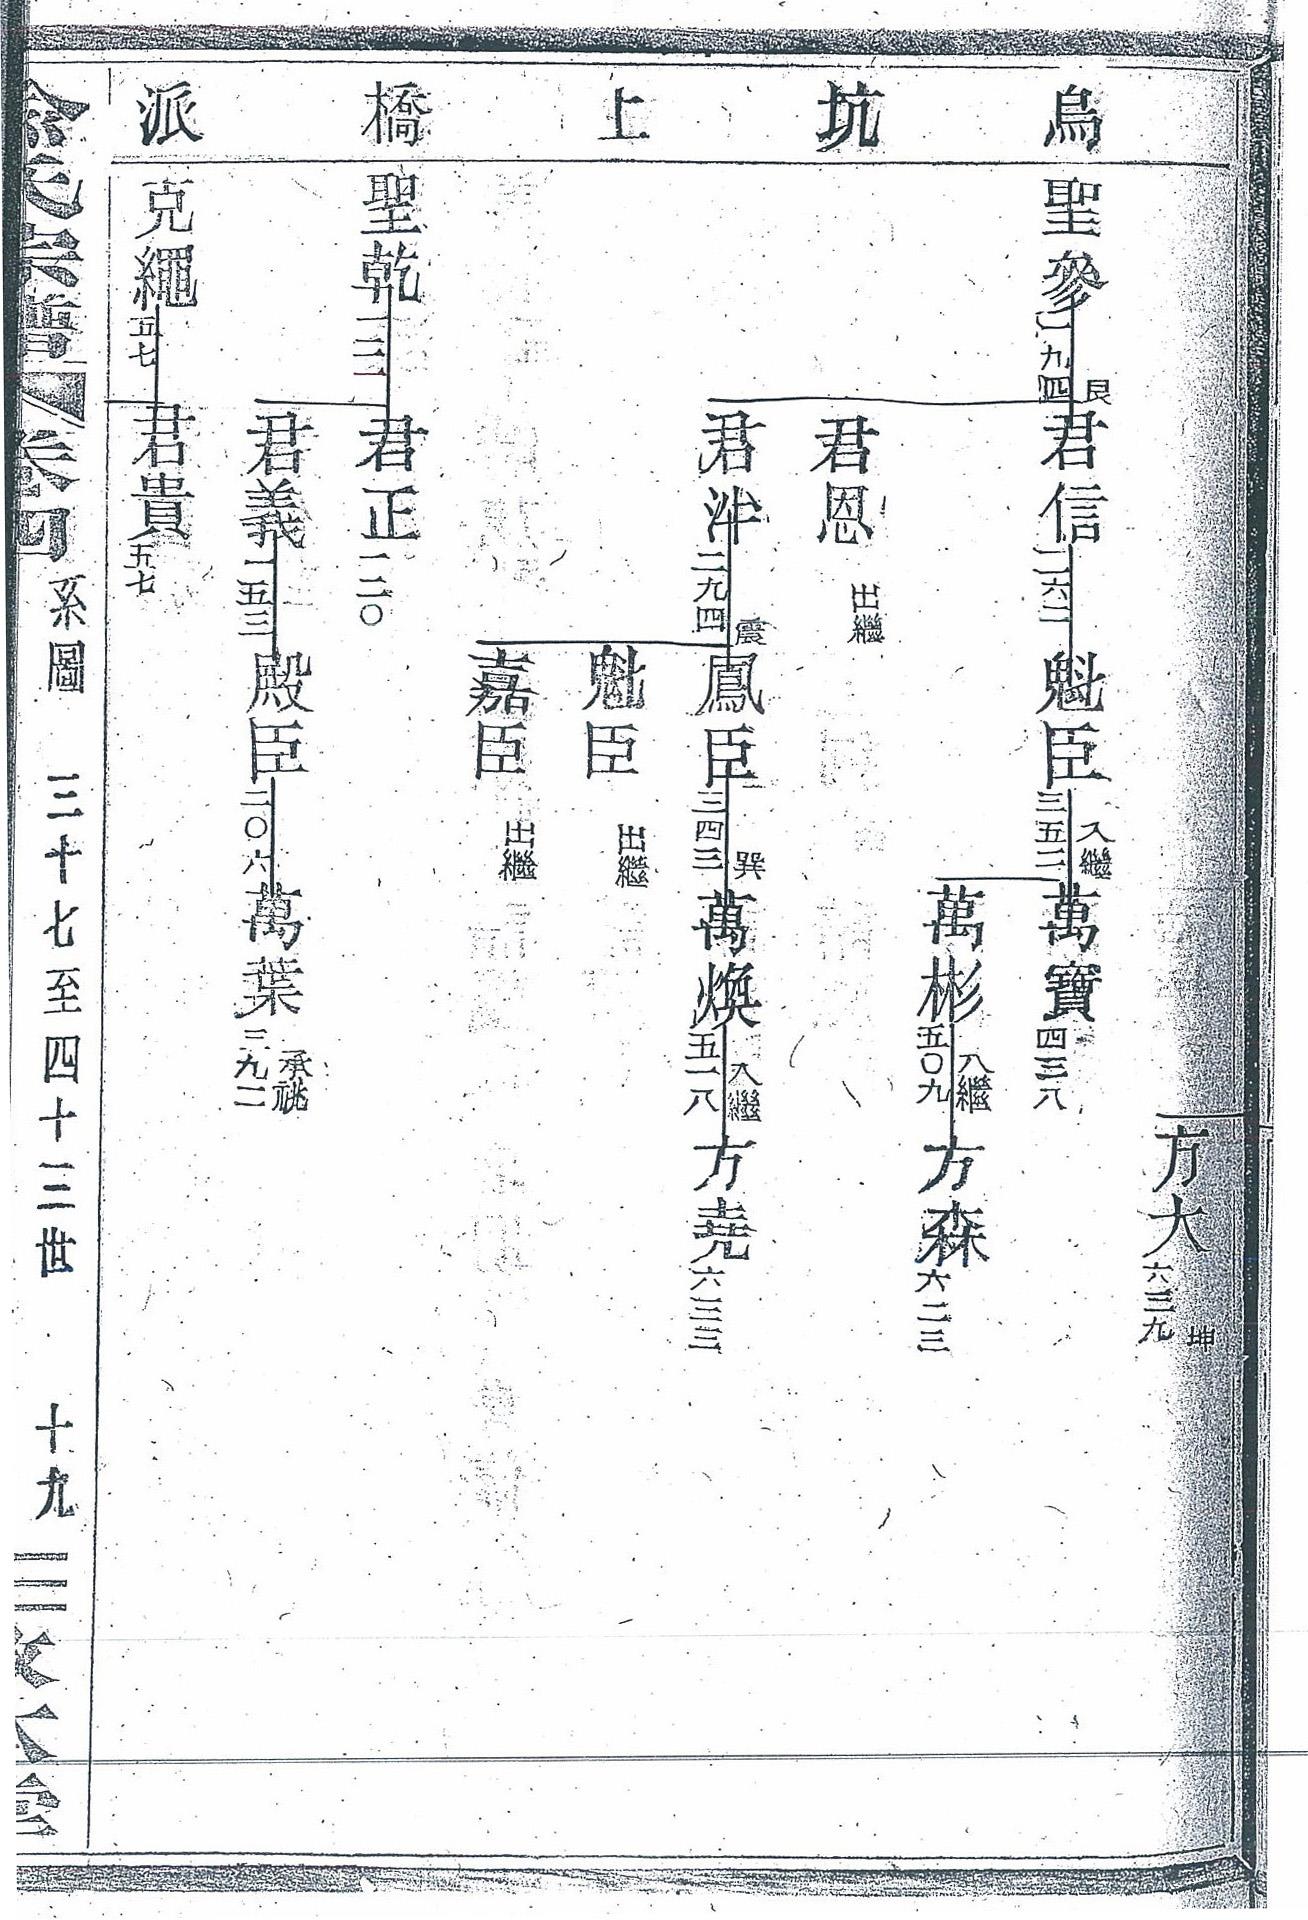 烏坑上橋派
方大 六三九 坤
聖參 一九四 艮
君信 二六二
魁臣 三五二 入繼
萬寶 四三八
萬彬 五〇九 入繼
方森 六二三
君恩 出繼
君泮 二九四 震
鳳臣 三四三 巽
萬煥 五一八 入繼
方堯 六三三
魁臣 出繼
嘉臣 出繼
聖乾
君正 一二〇
君義 一五三
殿臣 二〇六
萬葉 三九二 承祧
克繩 五七
君貴 五七
氏宗譜 卷四 系圖 三十七至四十三世 十九